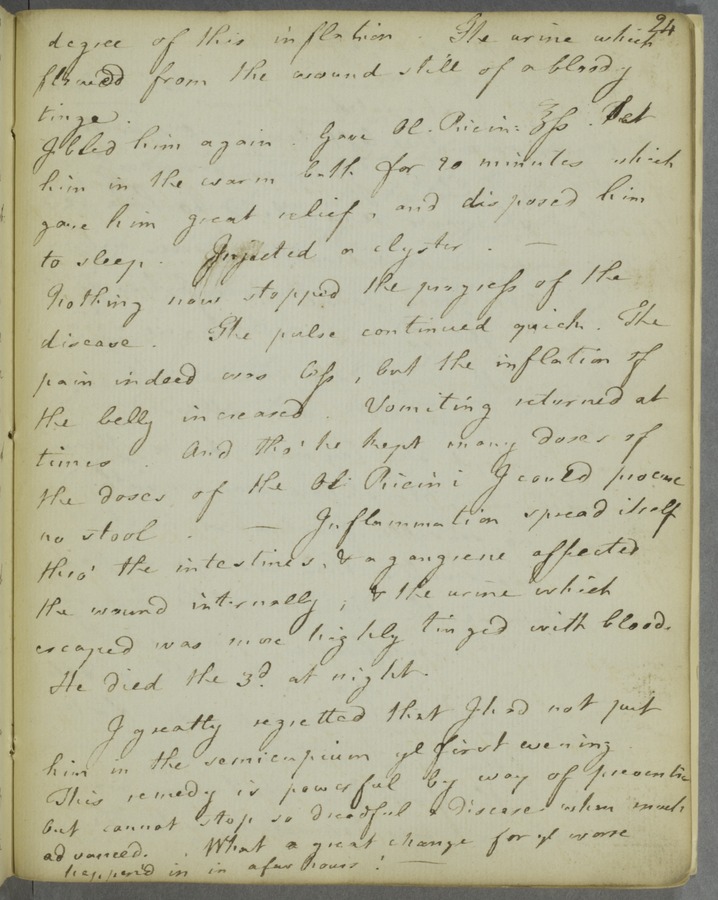 24
degree of this inflation. The urine which
flowed from the wound still of a bloody
tinge.
I bled him again. Gave Ol. Ricin: ℥ß. Put
him in the warm bath for 20 minutes which
gave him great relief, and disposed him
to sleep. Injected a clyster. —
Nothing now stopped the progress of the
disease. The pulse continued quick. The
pain indeed was less, but the inflation of
the belly increased. Vomiting returned at
times. And tho' he kept many doses of
the doses of the Ol Ricini I could procure
no stool. — Inflammation spread itself
thro' the intestines, & a gangrene affected
the wound internally, & the urine which
escaped was more highly tinged with blood.
He died the 3d. at night.
I greatly regretted that I had not put
him in the semicupium ye first evening
This remedy is powerful by way of preventive
but cannot stop so dreadful a Disease when much
advanced. What a great change for ye worse
happened in in a few hours! —